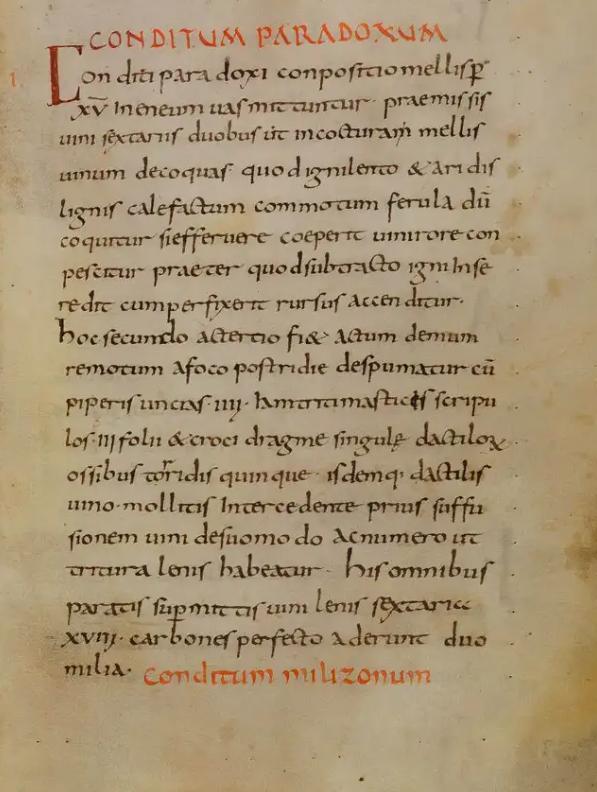 CONDITUM PARADOXUM
Conditi paradoxi conpositio mellis p̄
xv̄ In eneum uas mittuntur· praemissis
uini sextariis duobus ut in cocturam mellis
uinum decoquas· quod igni lento & aridis
lignis calefactum commotum ferula dū
coquitur si efferuere coeperit uini rore con
pescitur praeter quod subtracto igni In se
redit cum perfixerit rursus accenditur·
hoc secundo ac tertio fi& actum demum
remotum afoco postridie despumatur cū
piperis uncias· IIII· Iam triti masticis scripu
los· III folii & croci dragme singulę dactilorꝫ
ossibus torridis quinque· isdemq; dactilis
uino· mollitis Intercedente prius suffu
sionem uini desuo modo ac numero ut
tritura lenis habeatur· his omnibus
paratis supmittis uini lenis sextaria
xviii· carbones perfecto aderunt duo
milia· Conditum milizonum